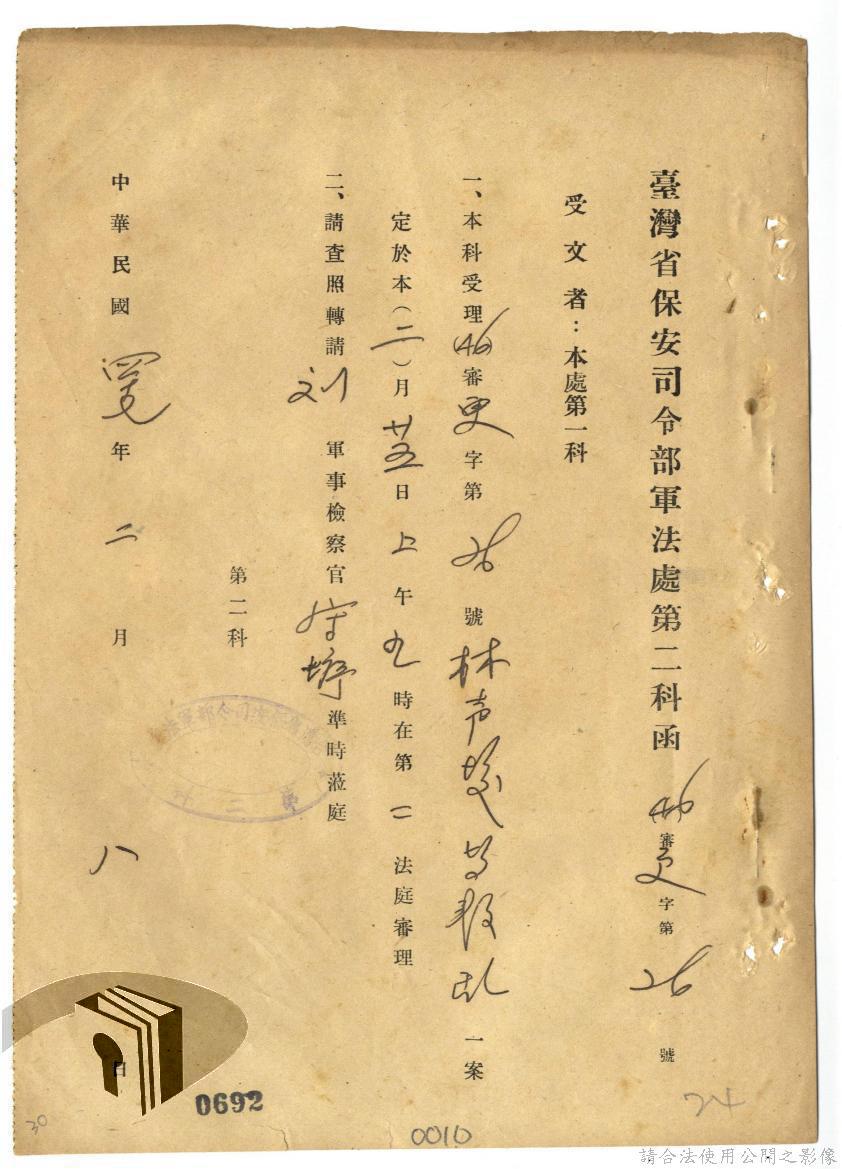 臺灣省保安司令部軍法處第二科函 46審更字第26號
受文者：本處第一科
一、本科受理46審更字第26號林声發等叛乱一案
定於本（二）月廿五日上午九時在第一法庭審理
二、請查照轉請刘軍事檢察官守墀準時蒞庭
第二科
中華民國年二月八日
0692
0010
24
30
請合法使用公開之影像